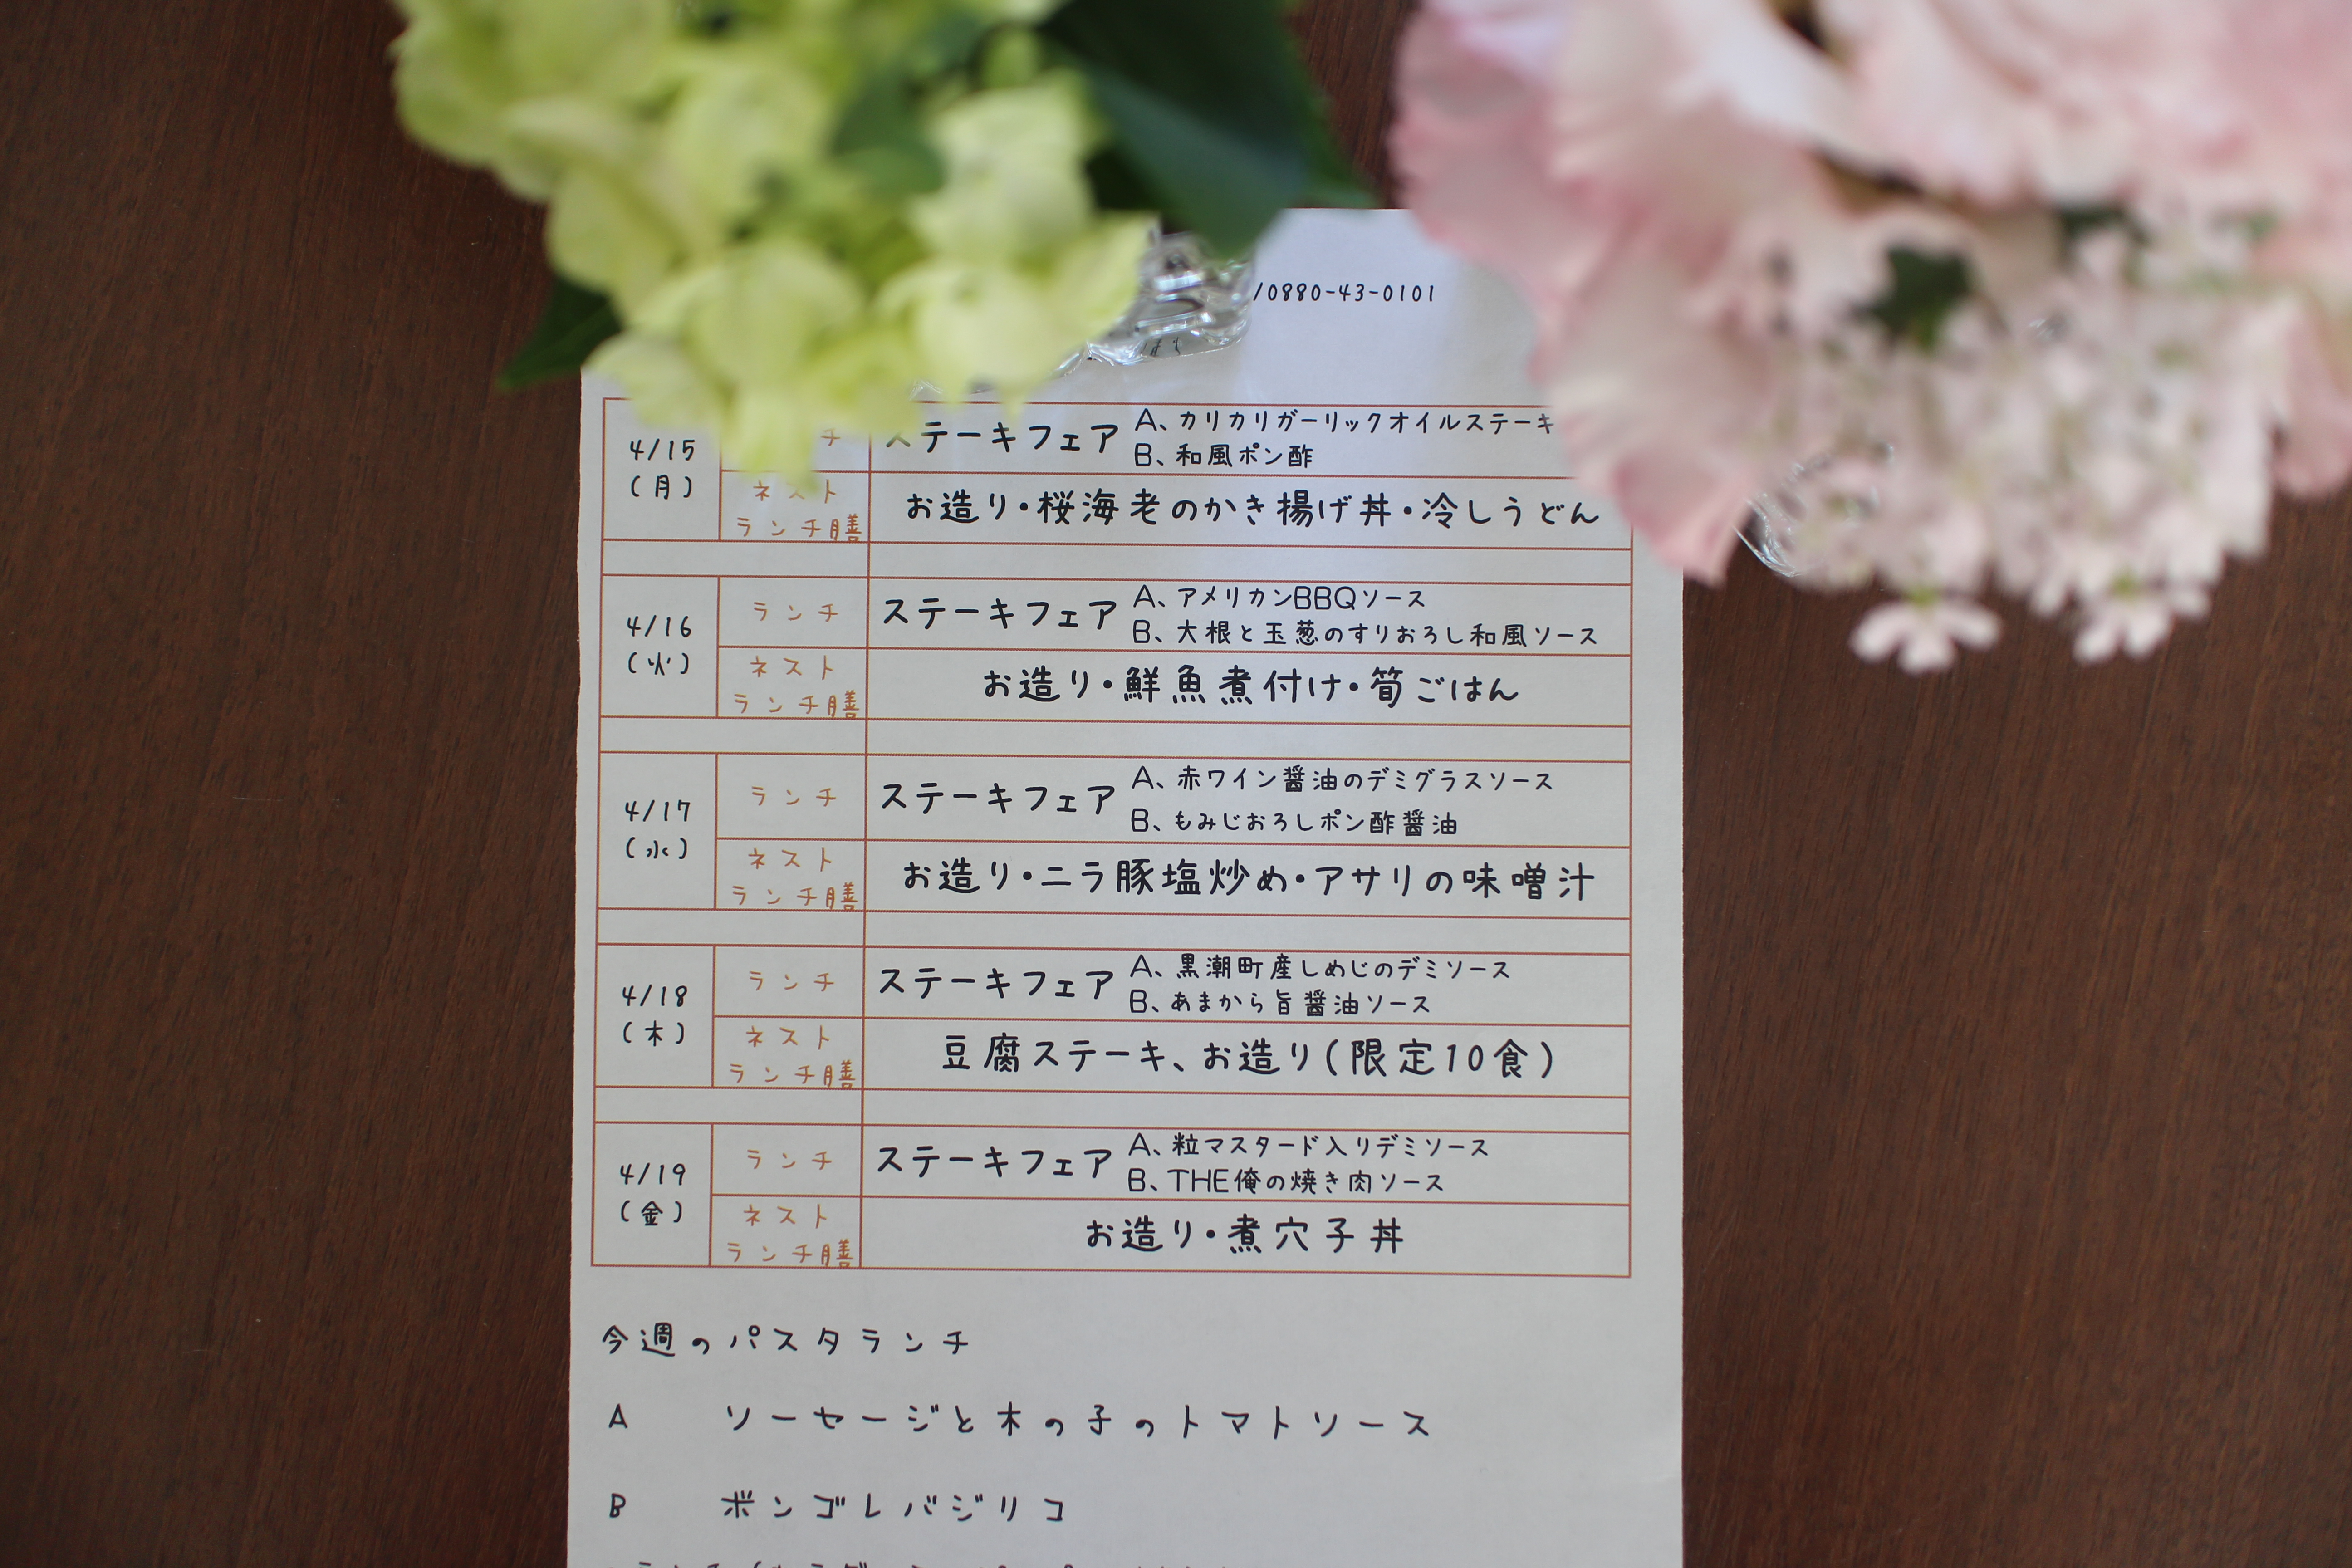 /0880-43-0101
4/15
(月)
チ
ステーキフェア
A、カリカリガーリックオイルステーキ
B、和風ポン酢
ネスト
ランチ膳
お造り・桜海老のかき揚げ丼・冷しうどん
4/16
(火)
ランチ
ステーキフェア
A、アメリカンBBQソース
B、大根と玉葱のすりおろし和風ソース
ネスト
ランチ膳
お造り・鮮魚煮付け・筍ごはん
4/17
(水)
ランチ
ステーキフェア
A、赤ワイン醤油のデミグラスソース
B、もみじおろしポン酢醤油
ネスト
ランチ膳
お造り・ニラ豚塩炒め・アサリの味噌汁
4/18
(木)
ランチ
ステーキフェア
A、黒潮町産しめじのデミソース
B、あまから旨醤油ソース
ネスト
ランチ膳
豆腐ステーキ、お造り(限定10食)
4/19
(金)
ランチ
ステーキフェア
A、粒マスタード入りデミソース
B、THE俺の焼き肉ソース
ネスト
ランチ膳
お造り・煮穴子丼
今週のパスタランチ
A ソーセージと木の子のトマトソース
B ボンゴレバジリコ